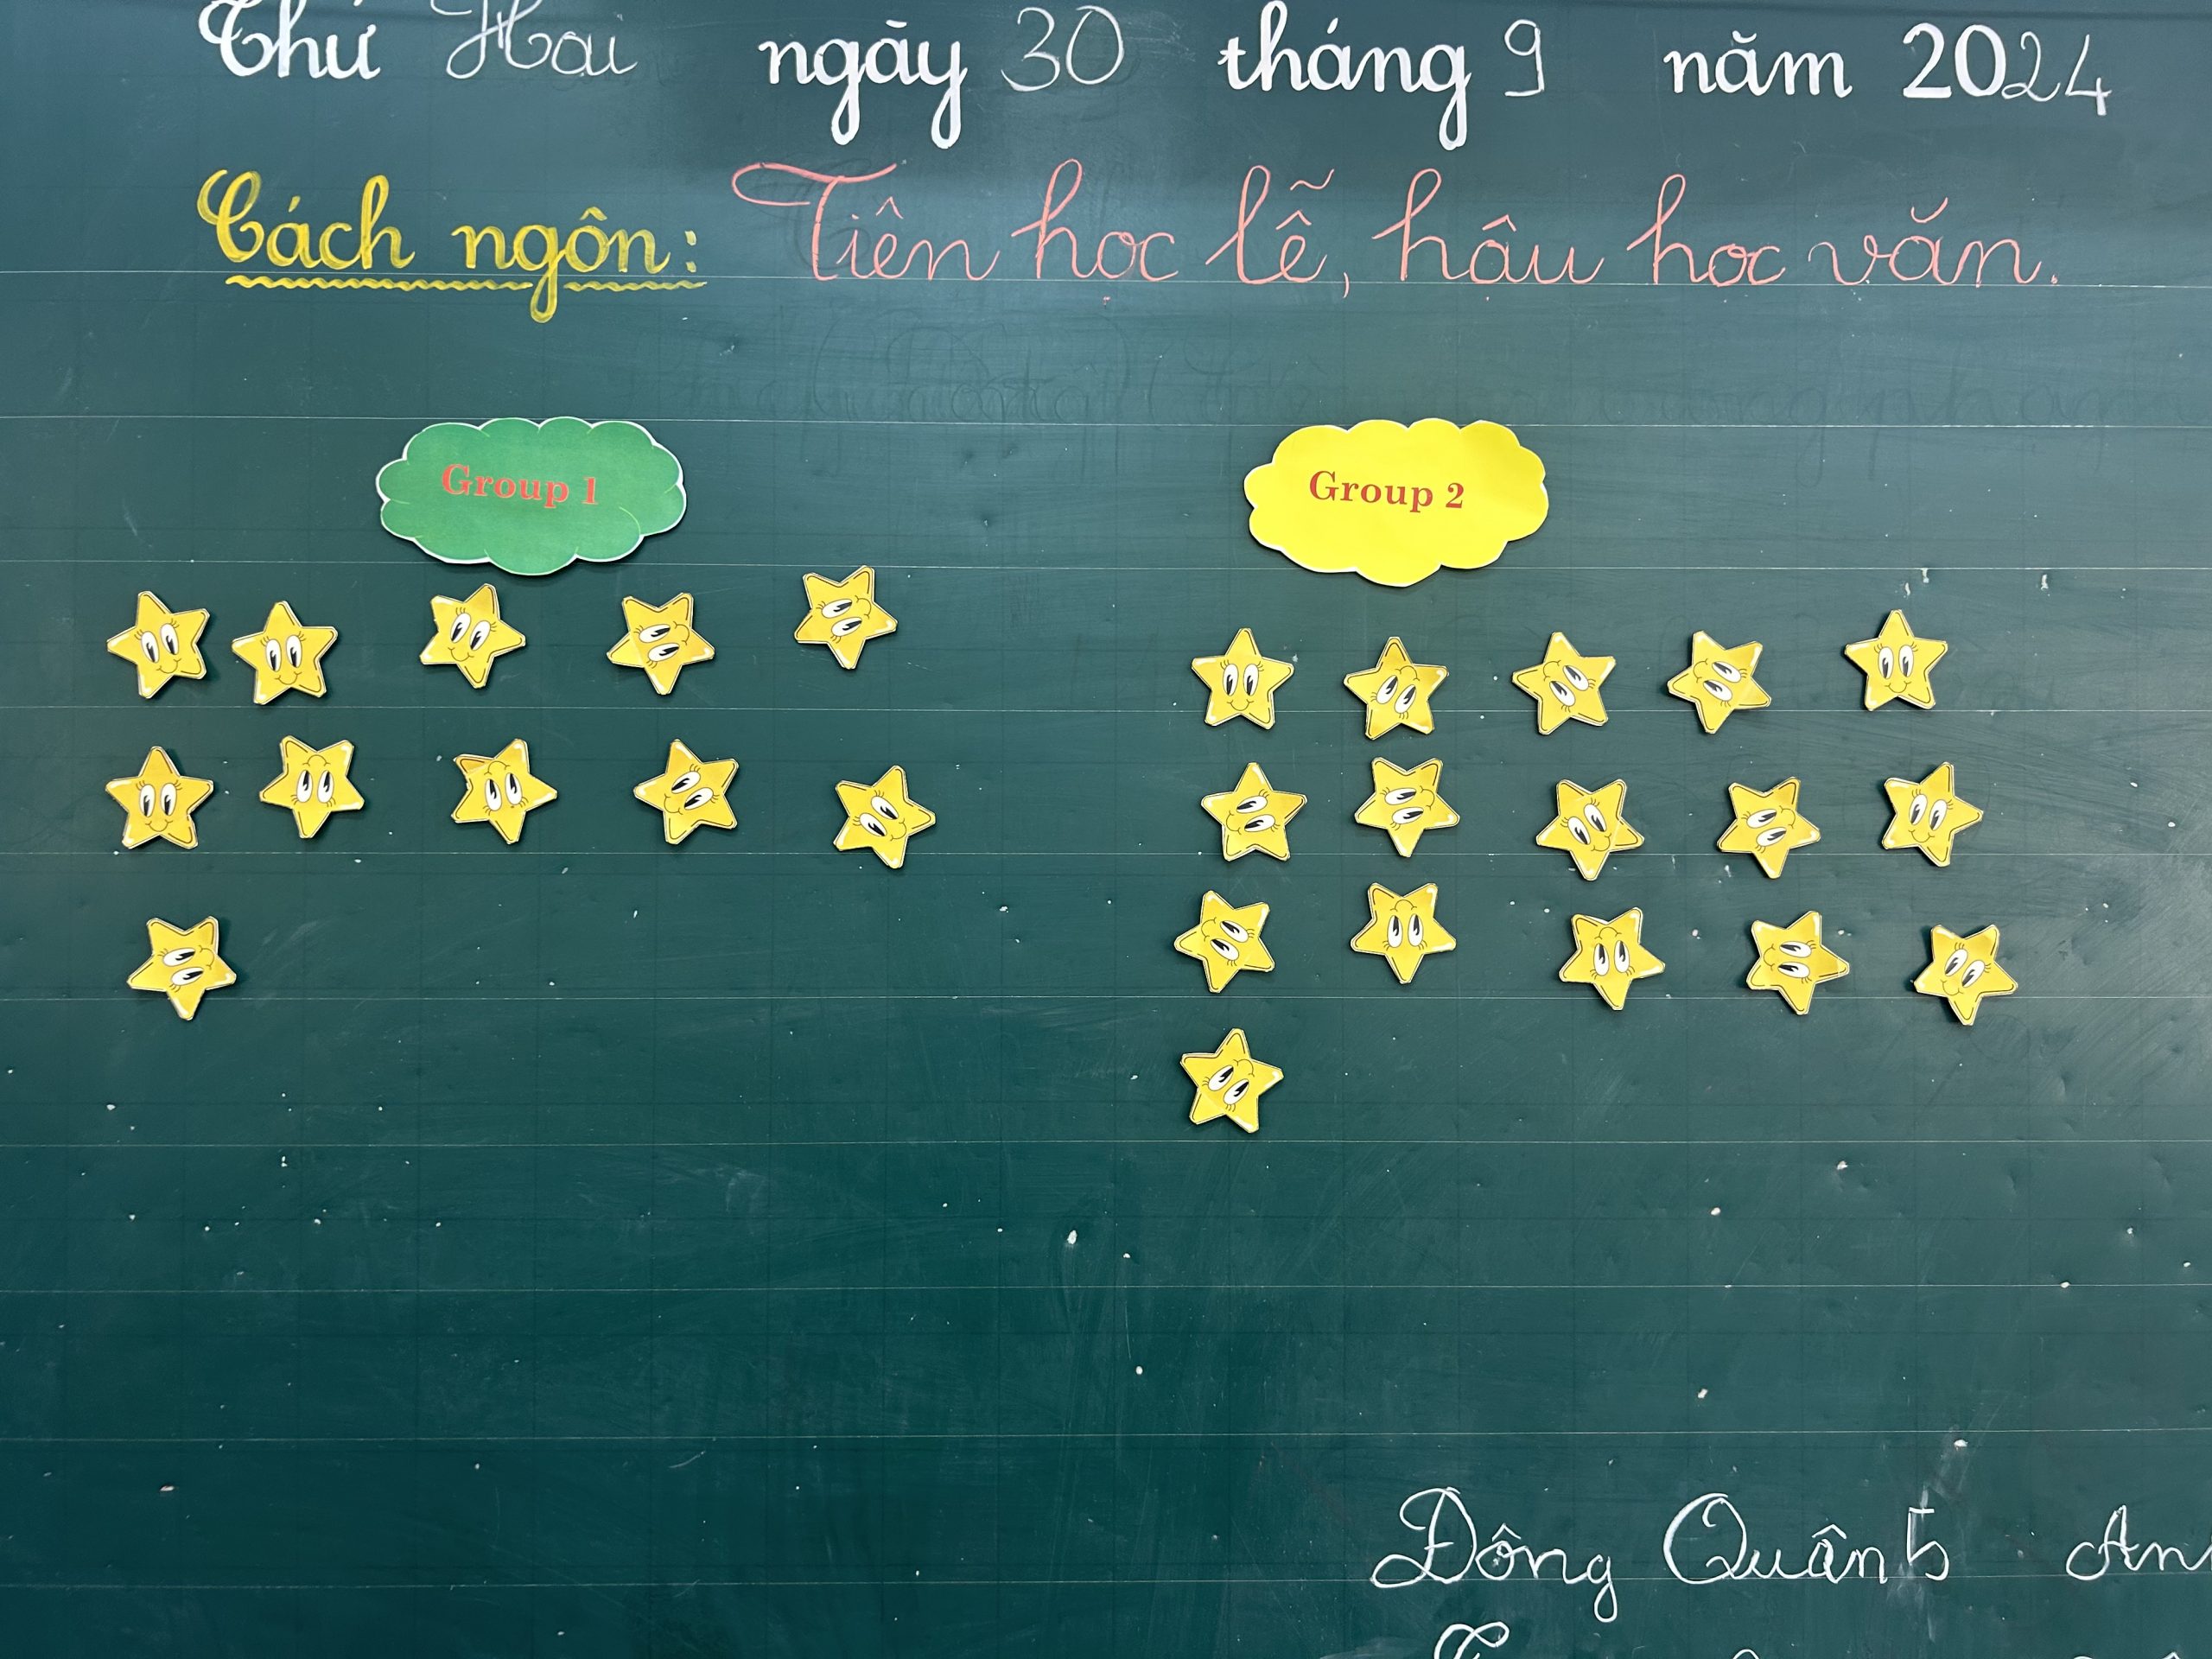 Thứ Hai ngày 30 tháng 9 năm 2024
Cách ngôn: Tiên học lễ, hậu học văn.
Group 1
Group 2
Đông Quân 5 An